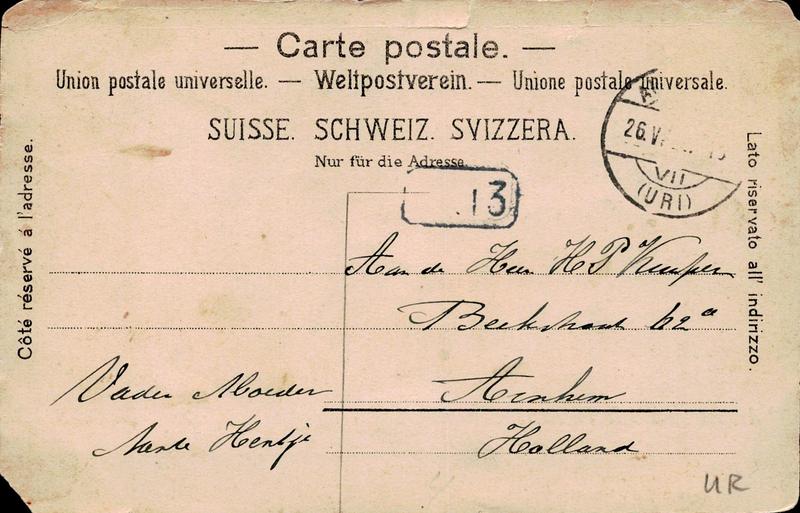 — Carte postale. —
Union postale universelle. — Weltpostverein. — Unione postale universale.
SUISSE. SCHWEIZ. SVIZZERA.
Nur für die Adresse.
Côté réservé á l'adresse.
Lato riservato all' indirizzo.
26.V
VII
(URI)
.13
Aan de Heer H P Kemper
Beekstraat 62a
Arnhem
Holland
Vader Moeder
Tante Hentje
UR